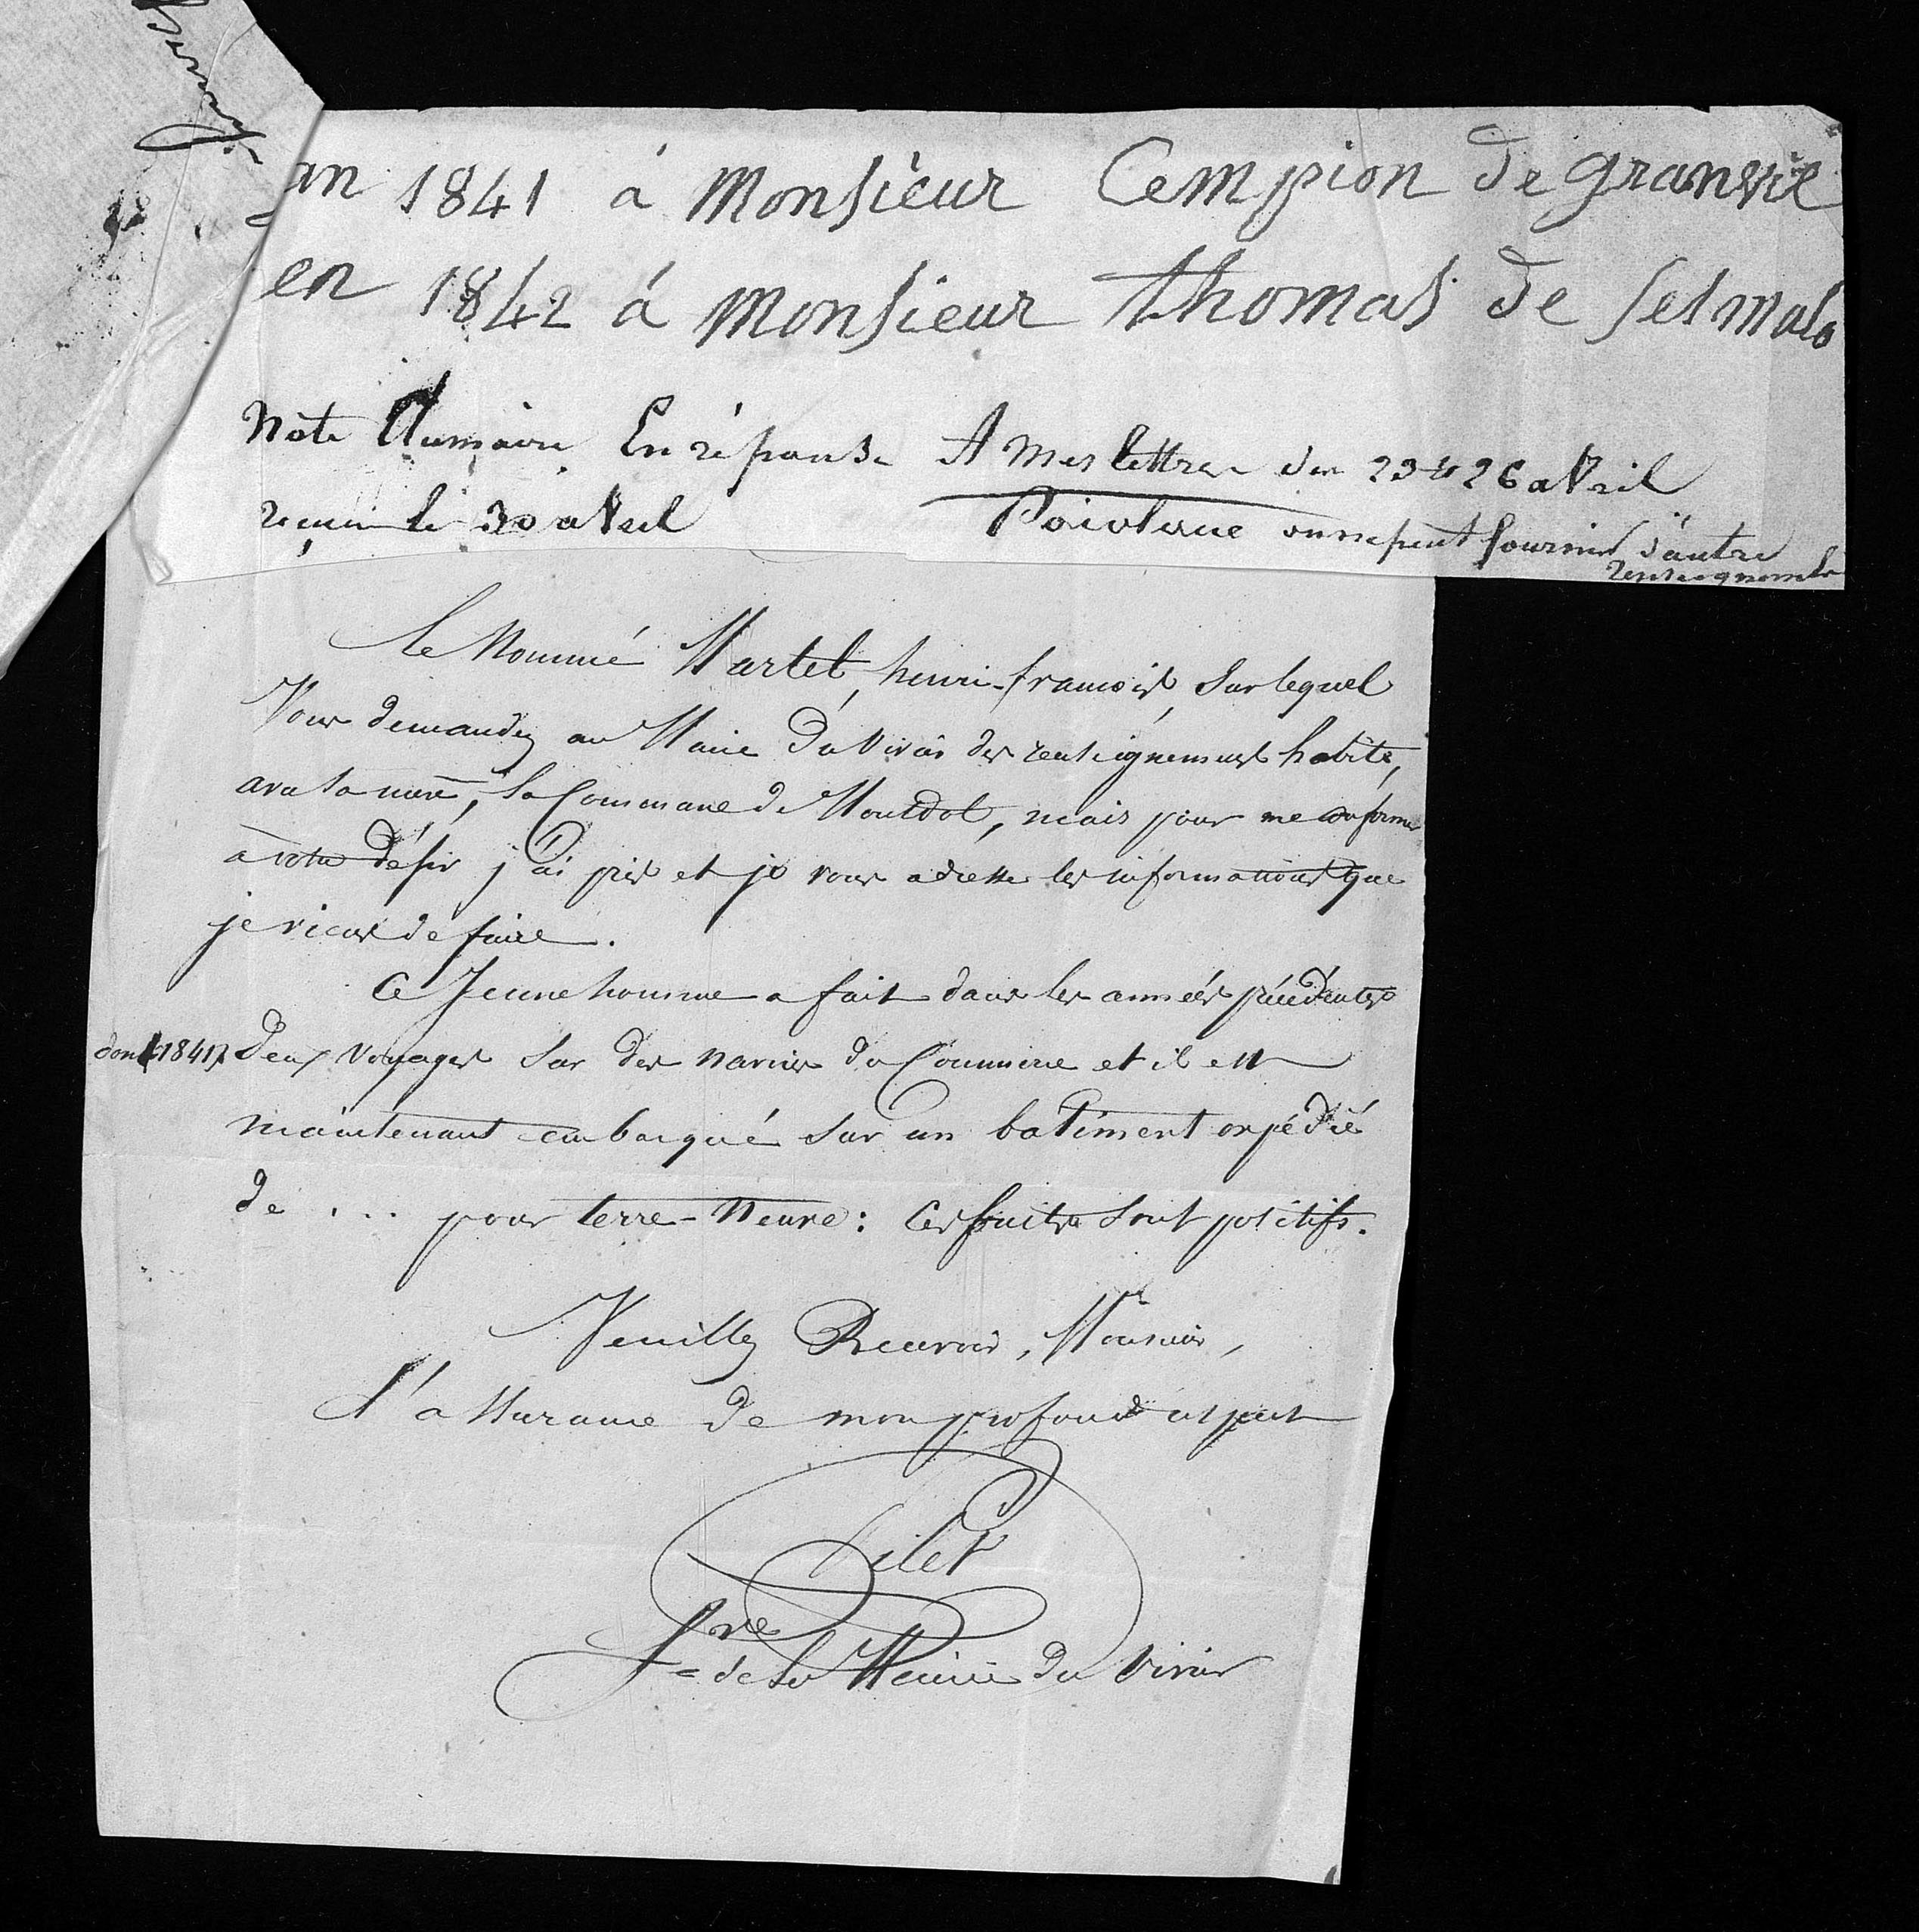 an 1841 á Monsieur Cempion de granvile
en 1842 á Monsieur thomas de setmalo
Note Dumaire En réponse A mes lettres des 23 et 26 avril
reçue le 30 avril on ne peut fournir d'autre
renseignements
Le Nommé Martel, henri-francois, sur lequel
Vous demandez au Maire du Vivier des renseignements habite,
avec sa mère, la Commune de Montdol, mais pour me conformer
à votre désir j'ai pris et je vous adresse les informations que
je viens de faire.
Ce Jeune homme a fait dans les années précédentes
dont 1841 Deux Voyages sur des navires du Commerce et il est
maintenant embarqué sur un batiment expédié
de ... pour terre-Neuve : Ces faits sont positifs.
Veuillez Recevoir, Monsieur,
l'assurance de mon profond respect
Pilet
Sre de la Mairie du Vivier